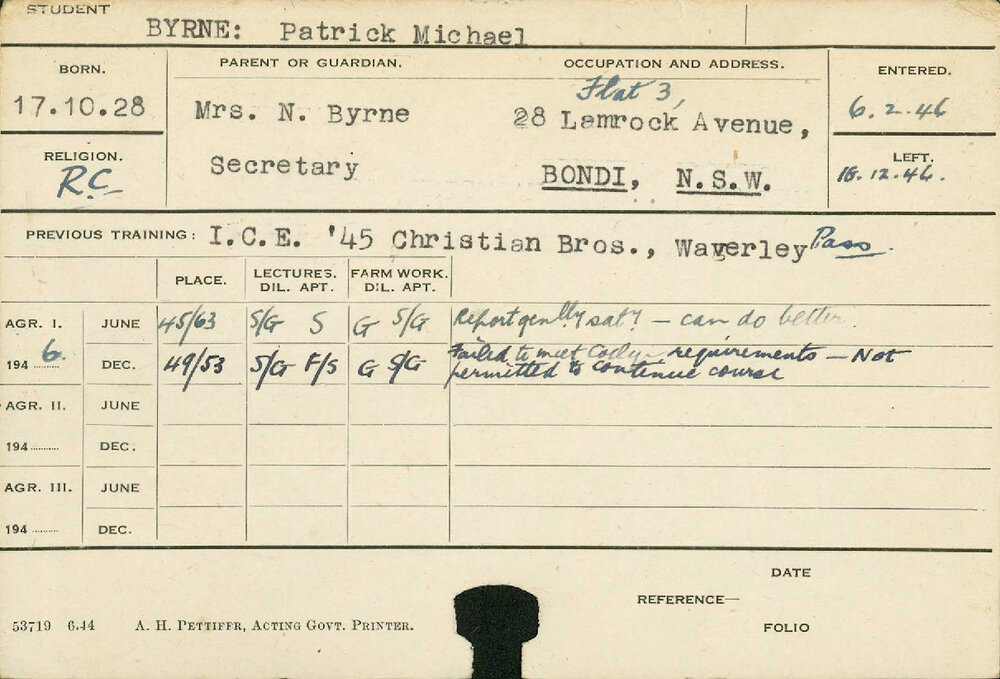 STUDENT
BYRNE: Patrick Michael
BORN. PARENT OR GUARDIAN. OCCUPATION AND ADDRESS. ENTERED.
Flat 3,
17.10.28 Mrs. N. Byrne 28 Lamrock Avenue, 6.2.46
RELIGION. Secretary BONDI, N.S.W. LEFT.
RC 18.12.46.
PREVIOUS TRAINING: I.C.E. '45 Christian Bros., Waverley Pass.
PLACE. LECTURES. FARM WORK.
DIL. APT. DIL. APT.
AGR. I. JUNE 45/63 S/G S G S/G Report gen'lly sat'y — can do better.
194 6. DEC. 49/53 S/G F/S G S/G Failed to meet requirements — Not
permitted to continue course
AGR. II. JUNE
194 DEC.
AGR. III. JUNE
194 DEC.
DATE
REFERENCE—
53719 6.44 A. H. PETTIFER, ACTING GOVT. PRINTER. FOLIO